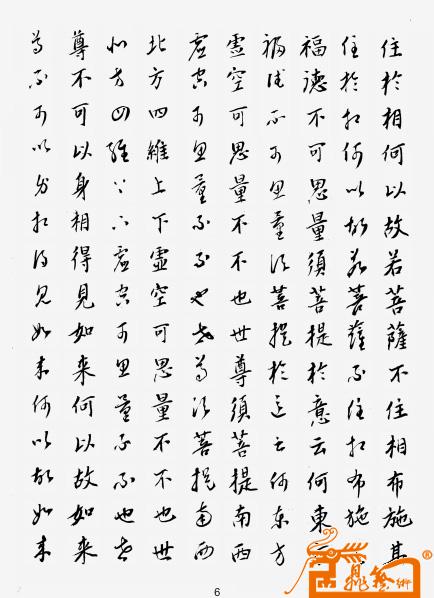 住於相何以故若菩薩不住相布施其
住於相何以故若菩薩不住相布施
福德不可思量須菩提於意云何東
福德不可思量須菩提於意云何東方
虛空可思量不不也世尊須菩提南西
虛空可思量不不也世尊須菩提南西
北方四維上下虛空可思量不不也世
北方四維上下虛空可思量不不也世
尊不可以身相得見如來何以故如來
尊不可以身相得見如來何以故如來
6